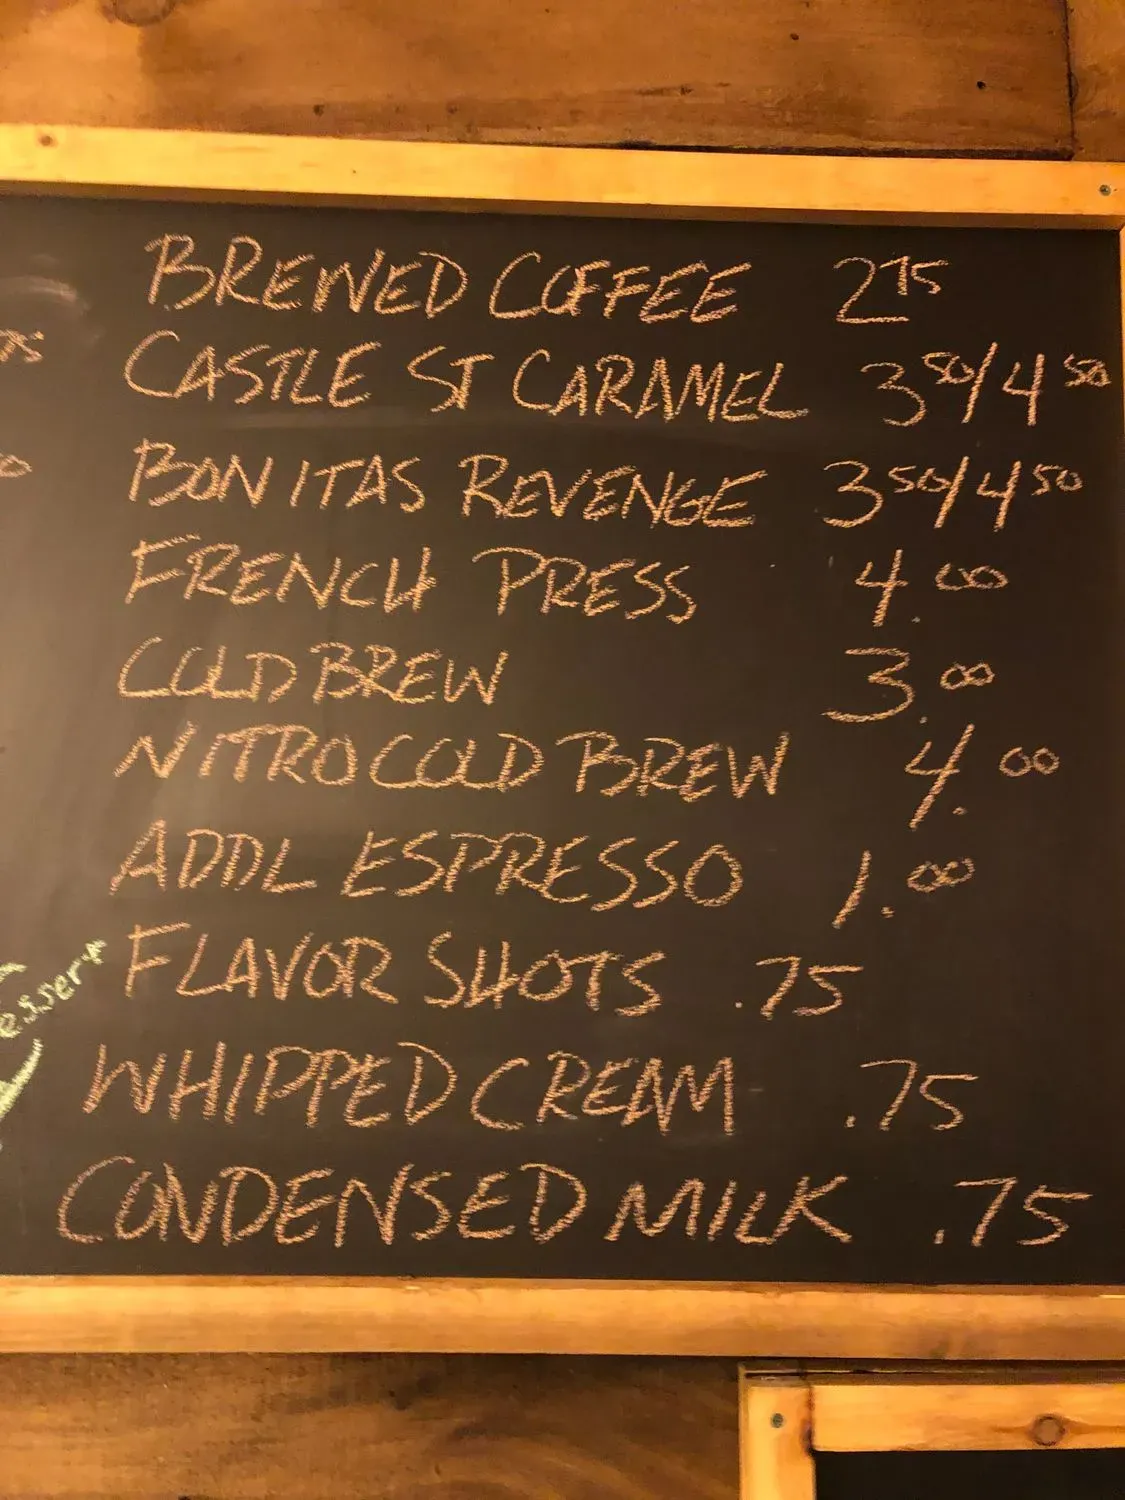 BREWED COFFEE 2.75
CASTLE ST CARAMEL 3.50/4.50
BONITAS REVENGE 3.50/4.50
FRENCH PRESS 4.00
COLD BREW 3.00
NITRO COLD BREW 4.00
ADDL ESPRESSO 1.00
FLAVOR SHOTS .75
WHIPPED CREAM .75
CONDENSED MILK .75